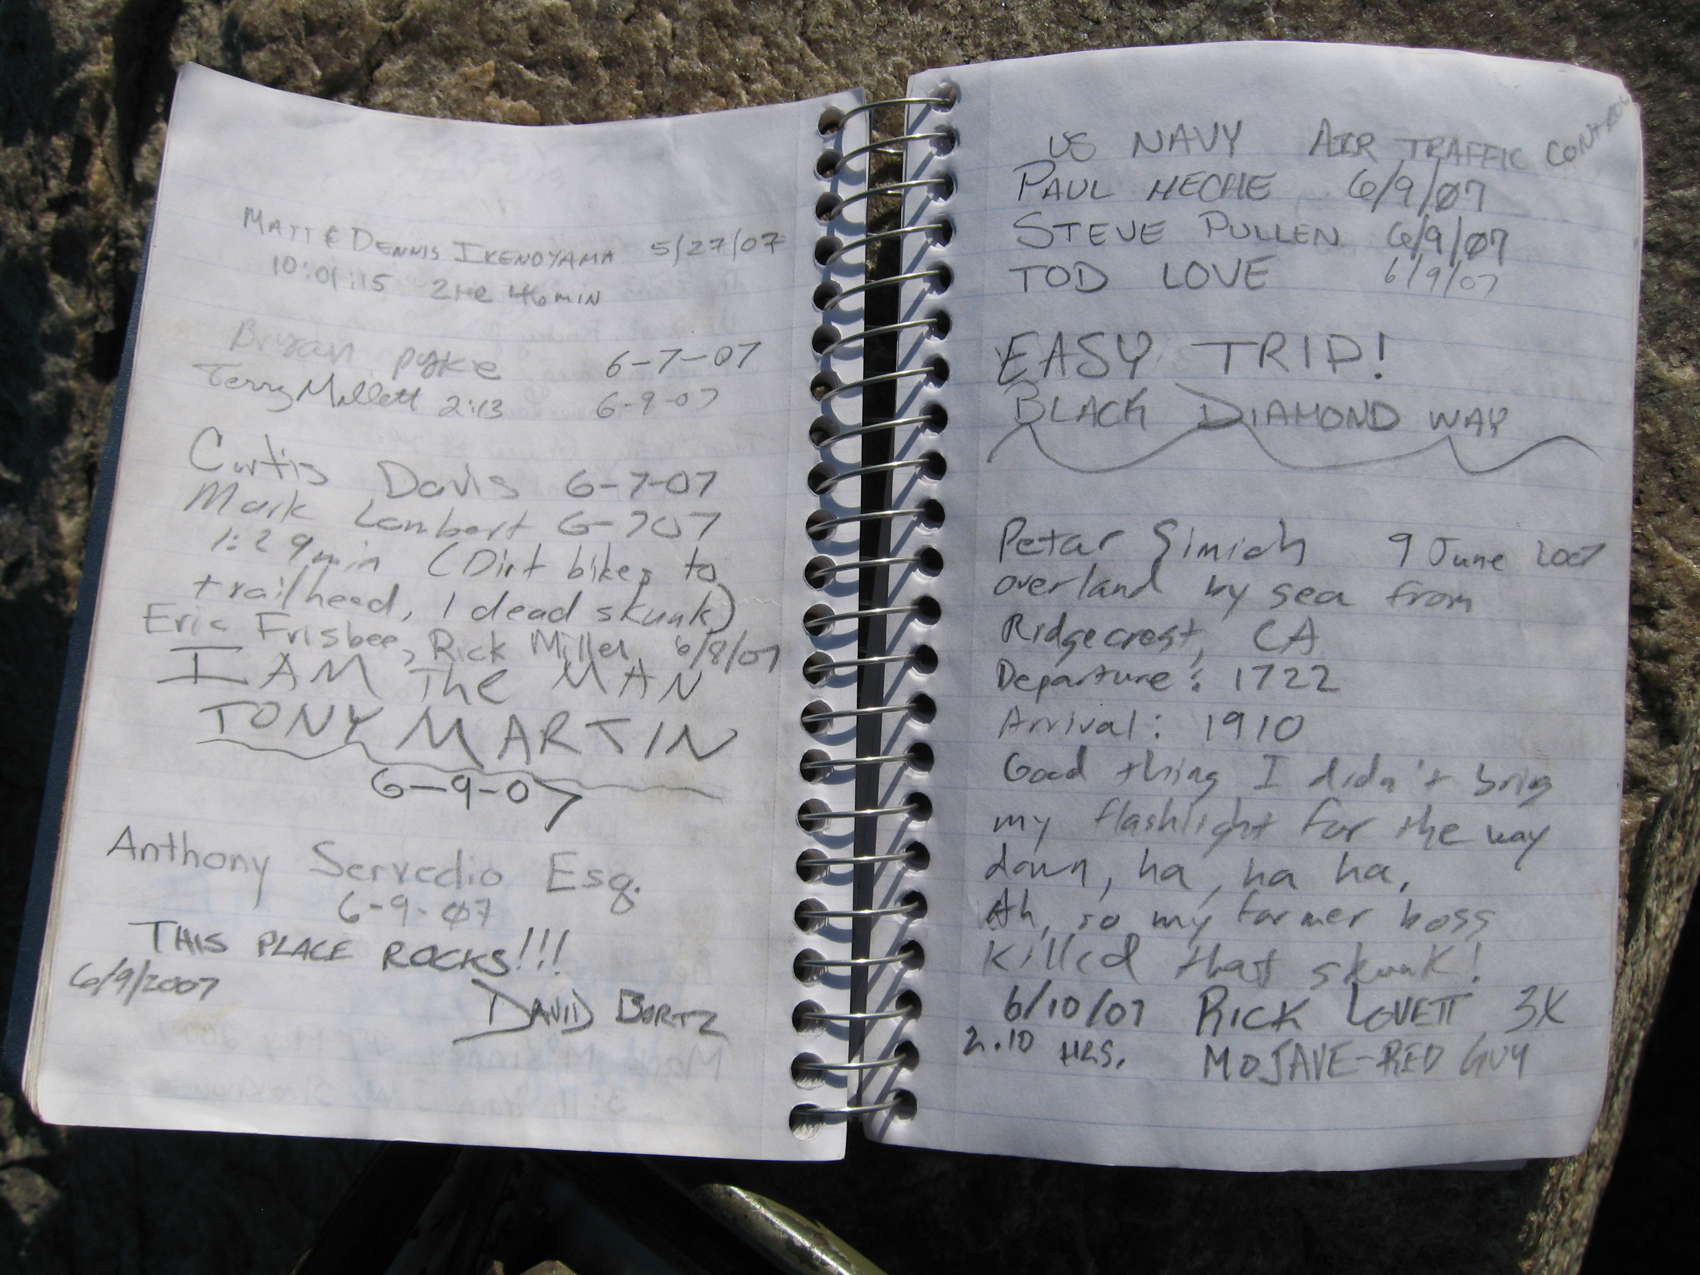 MATT & DENNIS IKENOYAMA 5/27/07
10:01:15 2HR 46MIN
Bryan pyke 6-7-07
Terry Mallett 2:13 6-9-07
Curtis Davis 6-7-07
Mark Lambert 6-707
1:29min (Dirt bikes to
trailhead, 1 dead skunk)
Eric Frisbee, Rick Miller 6/8/07
I AM THE MAN
TONY MARTIN
6-9-07
Anthony Servedio Esq.
6-9-07
THIS PLACE ROCKS!!!
6/9/2007
DAVID BORTZ
US NAVY AIR TRAFFIC CONTROL
PAUL HECHE 6/9/07
STEVE PULLEN 6/9/07
TOD LOVE 6/9/07
EASY TRIP!
BLACK DIAMOND WAY
Petar Simich 9 June 2007
overland by sea from
Ridgecrest, CA
Departure: 1722
Arrival: 1910
Good thing I didn't bring
my flashlight for the way
down, ha, ha ha.
Ah, so my former boss
killed that skunk!
6/10/07 RICK LOVETT 3X
2.10 HRS. MOJAVE-RED GUY